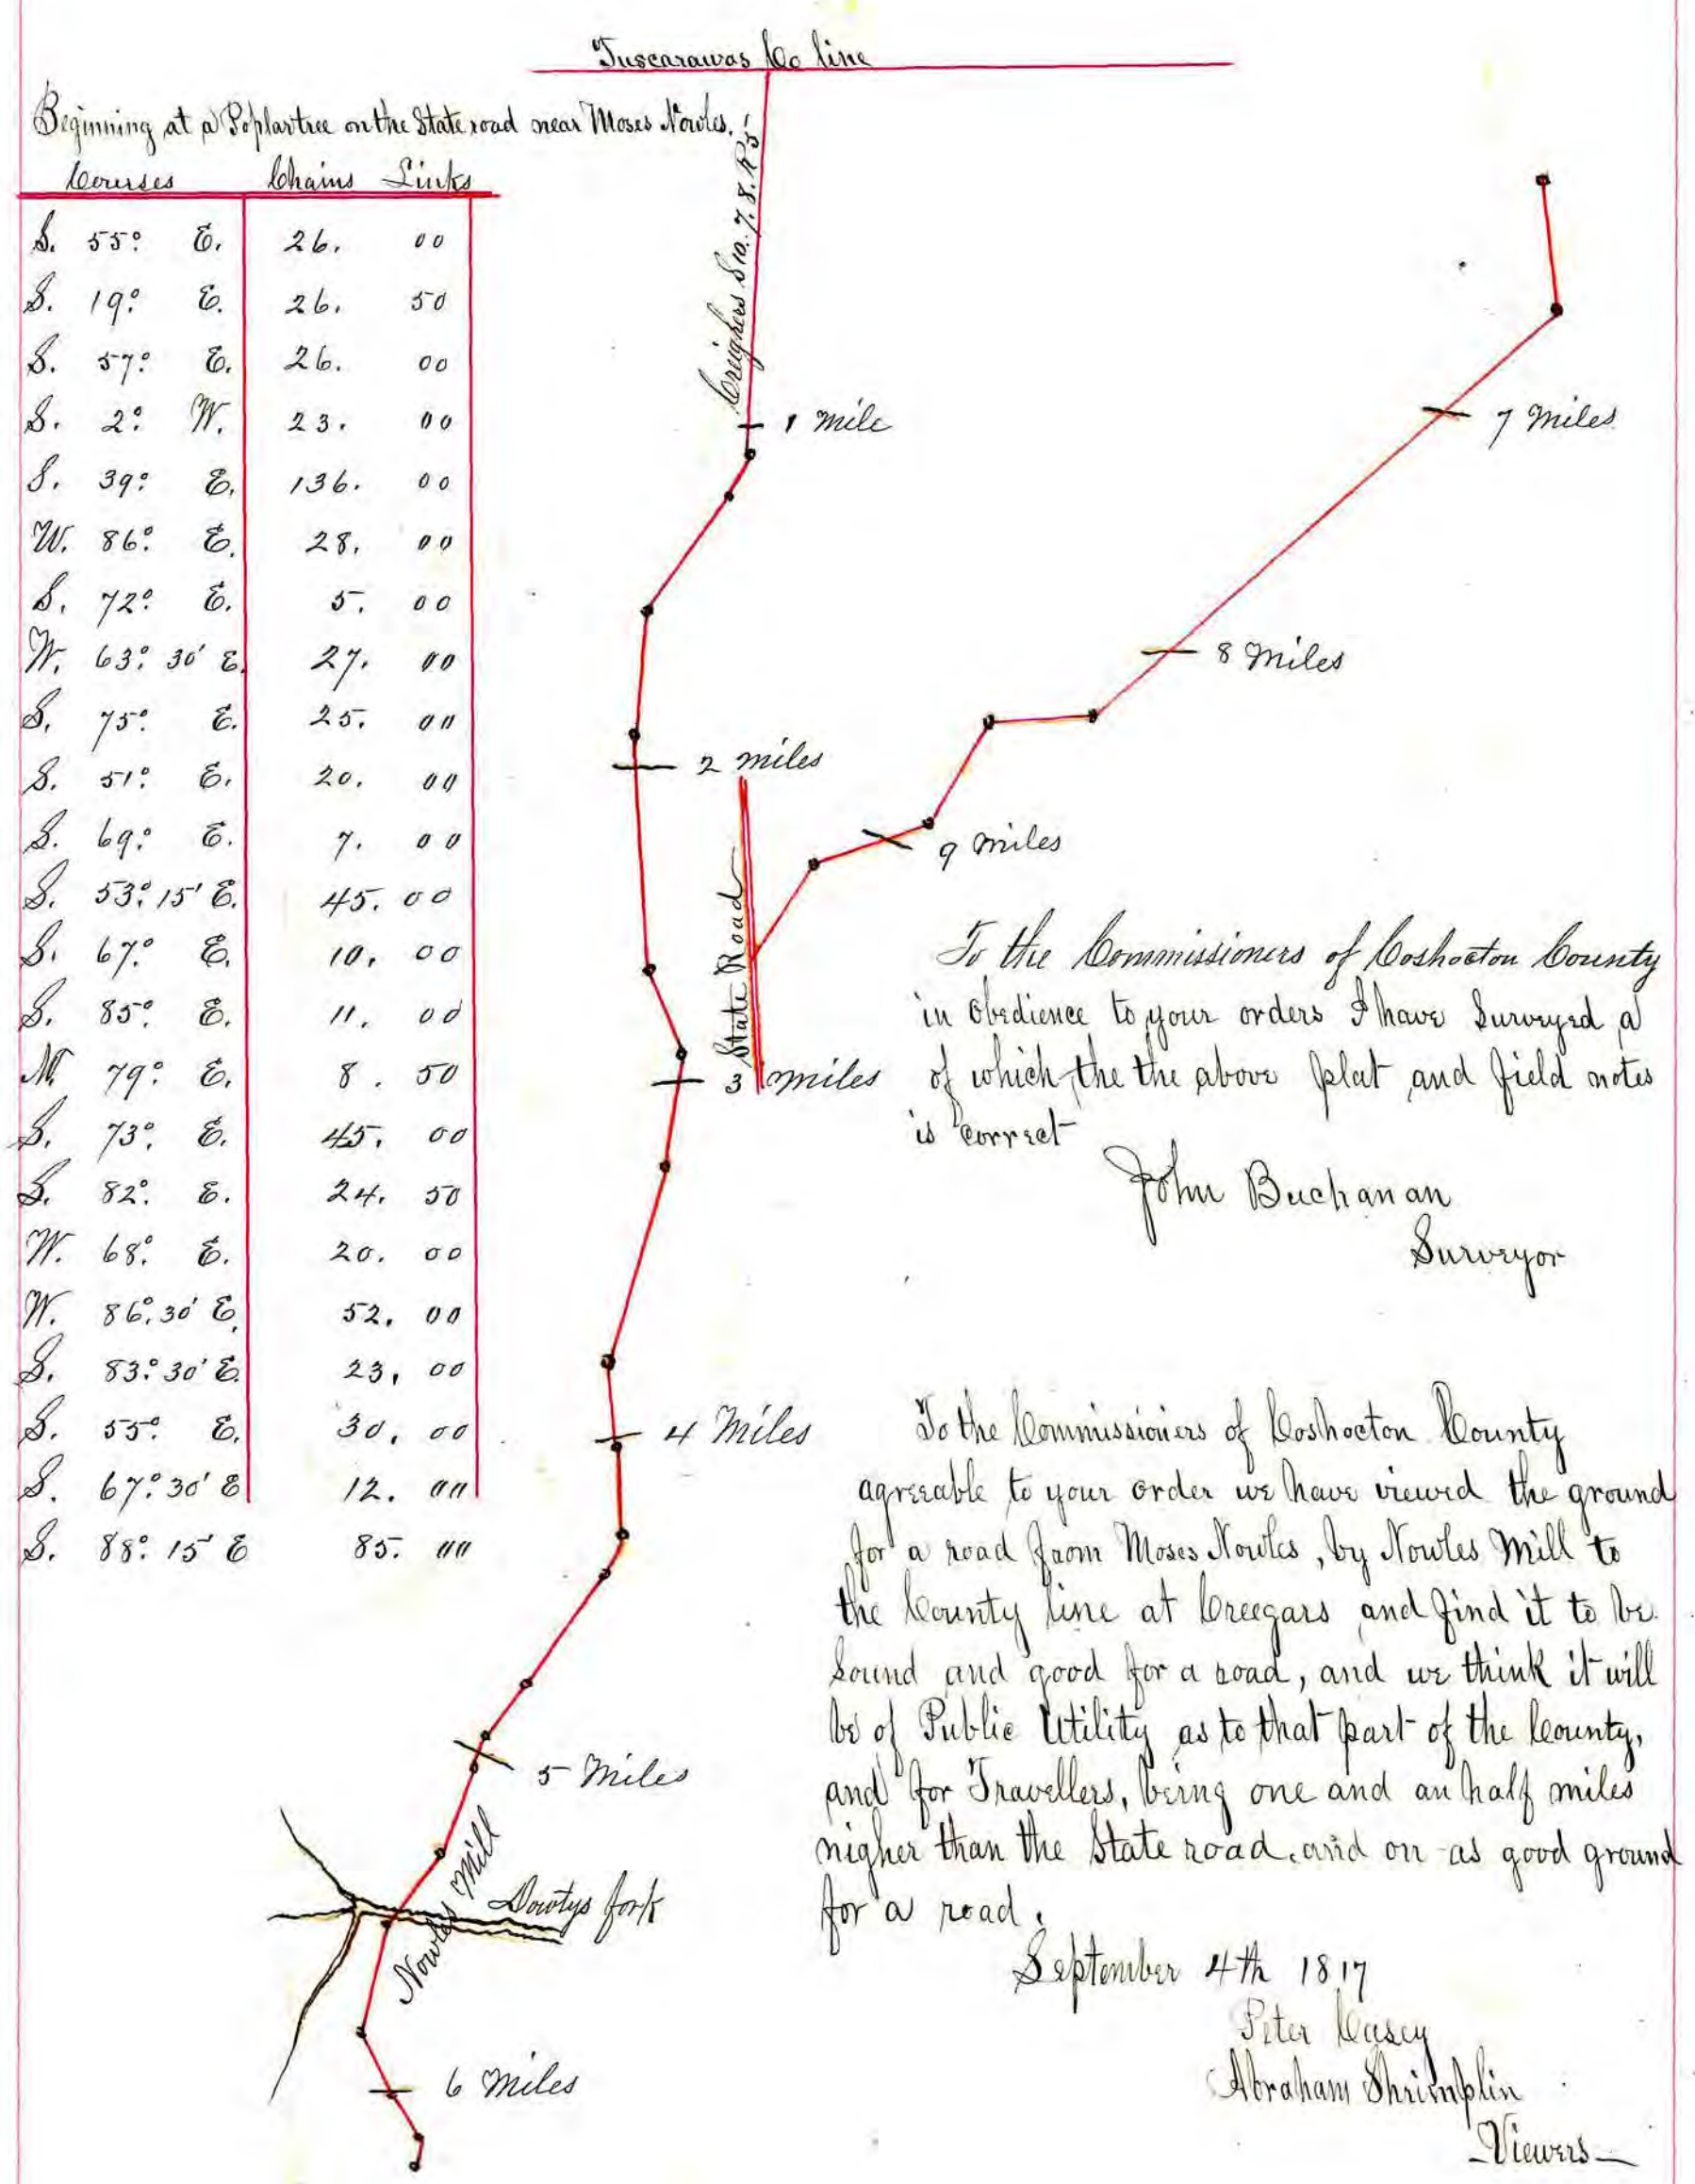 Tuscarawas Co line
Beginning at a Poplar tree on the State road near Moses Nowles.
Courses Chains Links
S. 55° E. 26. 00
S. 19° E. 26. 50
S. 57° E. 26. 00
S. 2° W. 23. 00
S. 39° E. 136. 00
W. 86° E. 28. 00
S. 72° E. 5. 00
W. 63° 30' E. 27. 00
S. 75° E. 25. 00
S. 51° E. 20. 00
S. 69° E. 7. 00
S. 53° 15' E. 45. 00
S. 67° E. 10. 00
S. 85° E. 11. 00
N 79° E. 8. 50
S. 73° E. 45. 00
S. 82° E. 24. 50
W. 68° E. 20. 00
W. 86° 30' E. 52. 00
S. 83° 30' E. 23. 00
S. 55° E. 30. 00
S. 67° 30' E 12. 00
S. 88° 15 E 85. 00
Creighers S 10. 7. 8. R 5
1 mile
2 miles
State Road
3 miles
4 Miles
5 Miles
Nowles Mill
Dowtys fork
6 Miles
7 Miles
8 Miles
9 Miles
To the Commissioners of Coshocton County
in obedience to your orders I have Surveyed a
of which the the above plat and field notes
is correct
John Buchanan
Surveyor
To the Commissioners of Coshocton County
agreeable to your order we have viewed the ground
for a road from Moses Nowles, by Nowles Mill to
the County line at Creegars and find it to be
sound and good for a road, and we think it will
be of Public Utility as to that part of the County,
and for Travellers, being one and an half miles
nigher than the State road, and on as good ground
for a road.
September 4th 1817
Peter Casey
Abraham Shrimplin
Viewers